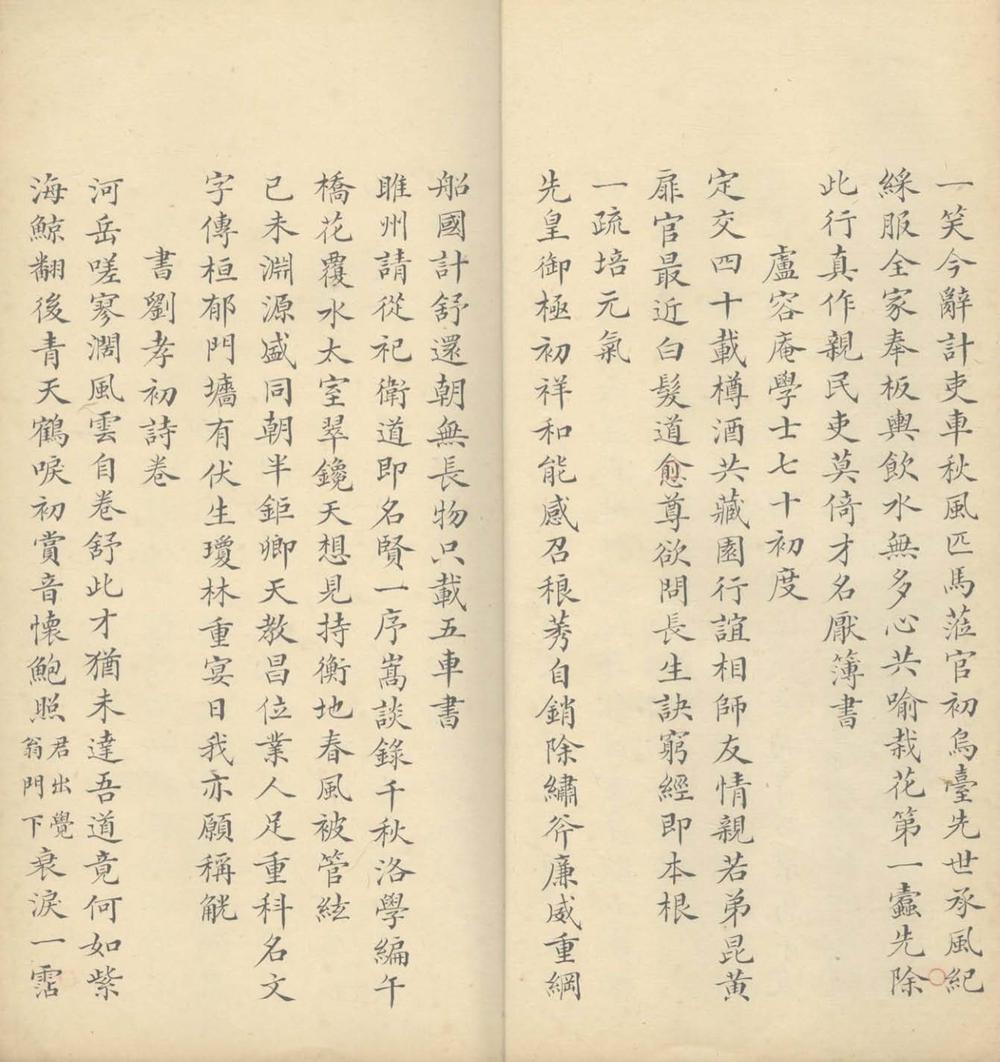 一笑今辭計吏車秋風匹馬蒞官初烏臺先世承風紀
綵服全家奉板輿飲水無多心共喻栽花第一蠹先除
此行真作親民吏莫倚才名厭簿書
盧容庵學士七十初度
定交四十載樽酒共藏園行誼相師友情親若弟昆黃
扉官最近白髮道愈尊欲問長生訣窮經即本根
一疏培元氣
先皇御極初祥和能感召稂莠自銷除繡斧廉威重綱
船國計舒還朝無長物只載五車書
睢州請從祀衛道即名賢一序嵩談錄千秋洛學編午
橋花覆水太室翠鑱天想見持衡地春風被管絃
已未淵源盛同朝半鉅卿天教昌位業人足重科名文
字傳桓郁門牆有伏生瓊林重宴日我亦願稱觥
書劉孝初詩卷
河岳嗟寥濶風雲自卷舒此才猶未達吾道竟何如紫
海鯨翻後青天鶴唳初賞音懷鮑照君出覺翁門下衰淚一霑